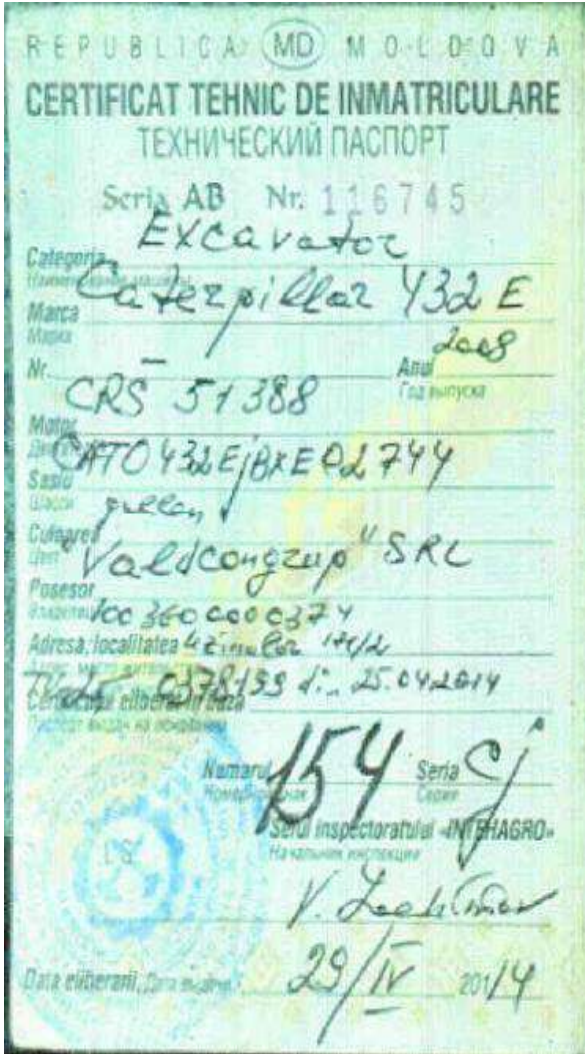 REPUBLICA MD MOLDOVA
CERTIFICAT TEHNIC DE INMATRICULARE
ТЕХНИЧЕСКИЙ ПАСПОРТ
Seria AB Nr. 116745
Excavator
Categoria
Наименование машины
Caterpillar 432 E
Marca
Марка
Nr. — Anul 2008
Год выпуска
CRS 51388
Motor
CAT0432EjBXE02744
Sasiu
Шасси
Culoarea
Цвет
"Valdcongrup" SRL
Posesor
Владелец
1003600000374
Adresa, localitatea
0378199 din 25.04.2014
Certificatul eliberat in baza
Паспорт выдан на основании
Numarul 154 Seria Cj
Серия
Seful inspectoratului «INTEHAGRO»
Начальник инспекции
V.
L.S.
Data eliberarii, Дата выдачи 29/IV 2014